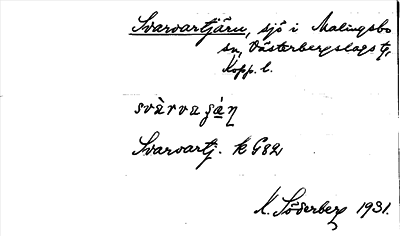 Svarvartjärn, sjö i Malingsbo
sn, Västerbergslags tg,
Kopp. l.
svàrva ʃä̀ɳ
Svarvartj. k G82
K. Söderberg 1931.